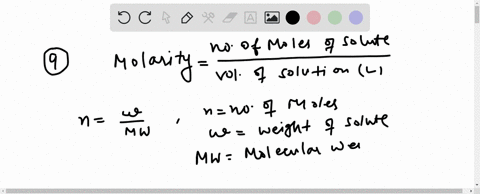 9 Molarity = no. of Moles of solute / vol. of solution (L)
n = w / MW , n = no. of Moles
w = weight of solute
MW = Molecular Wei